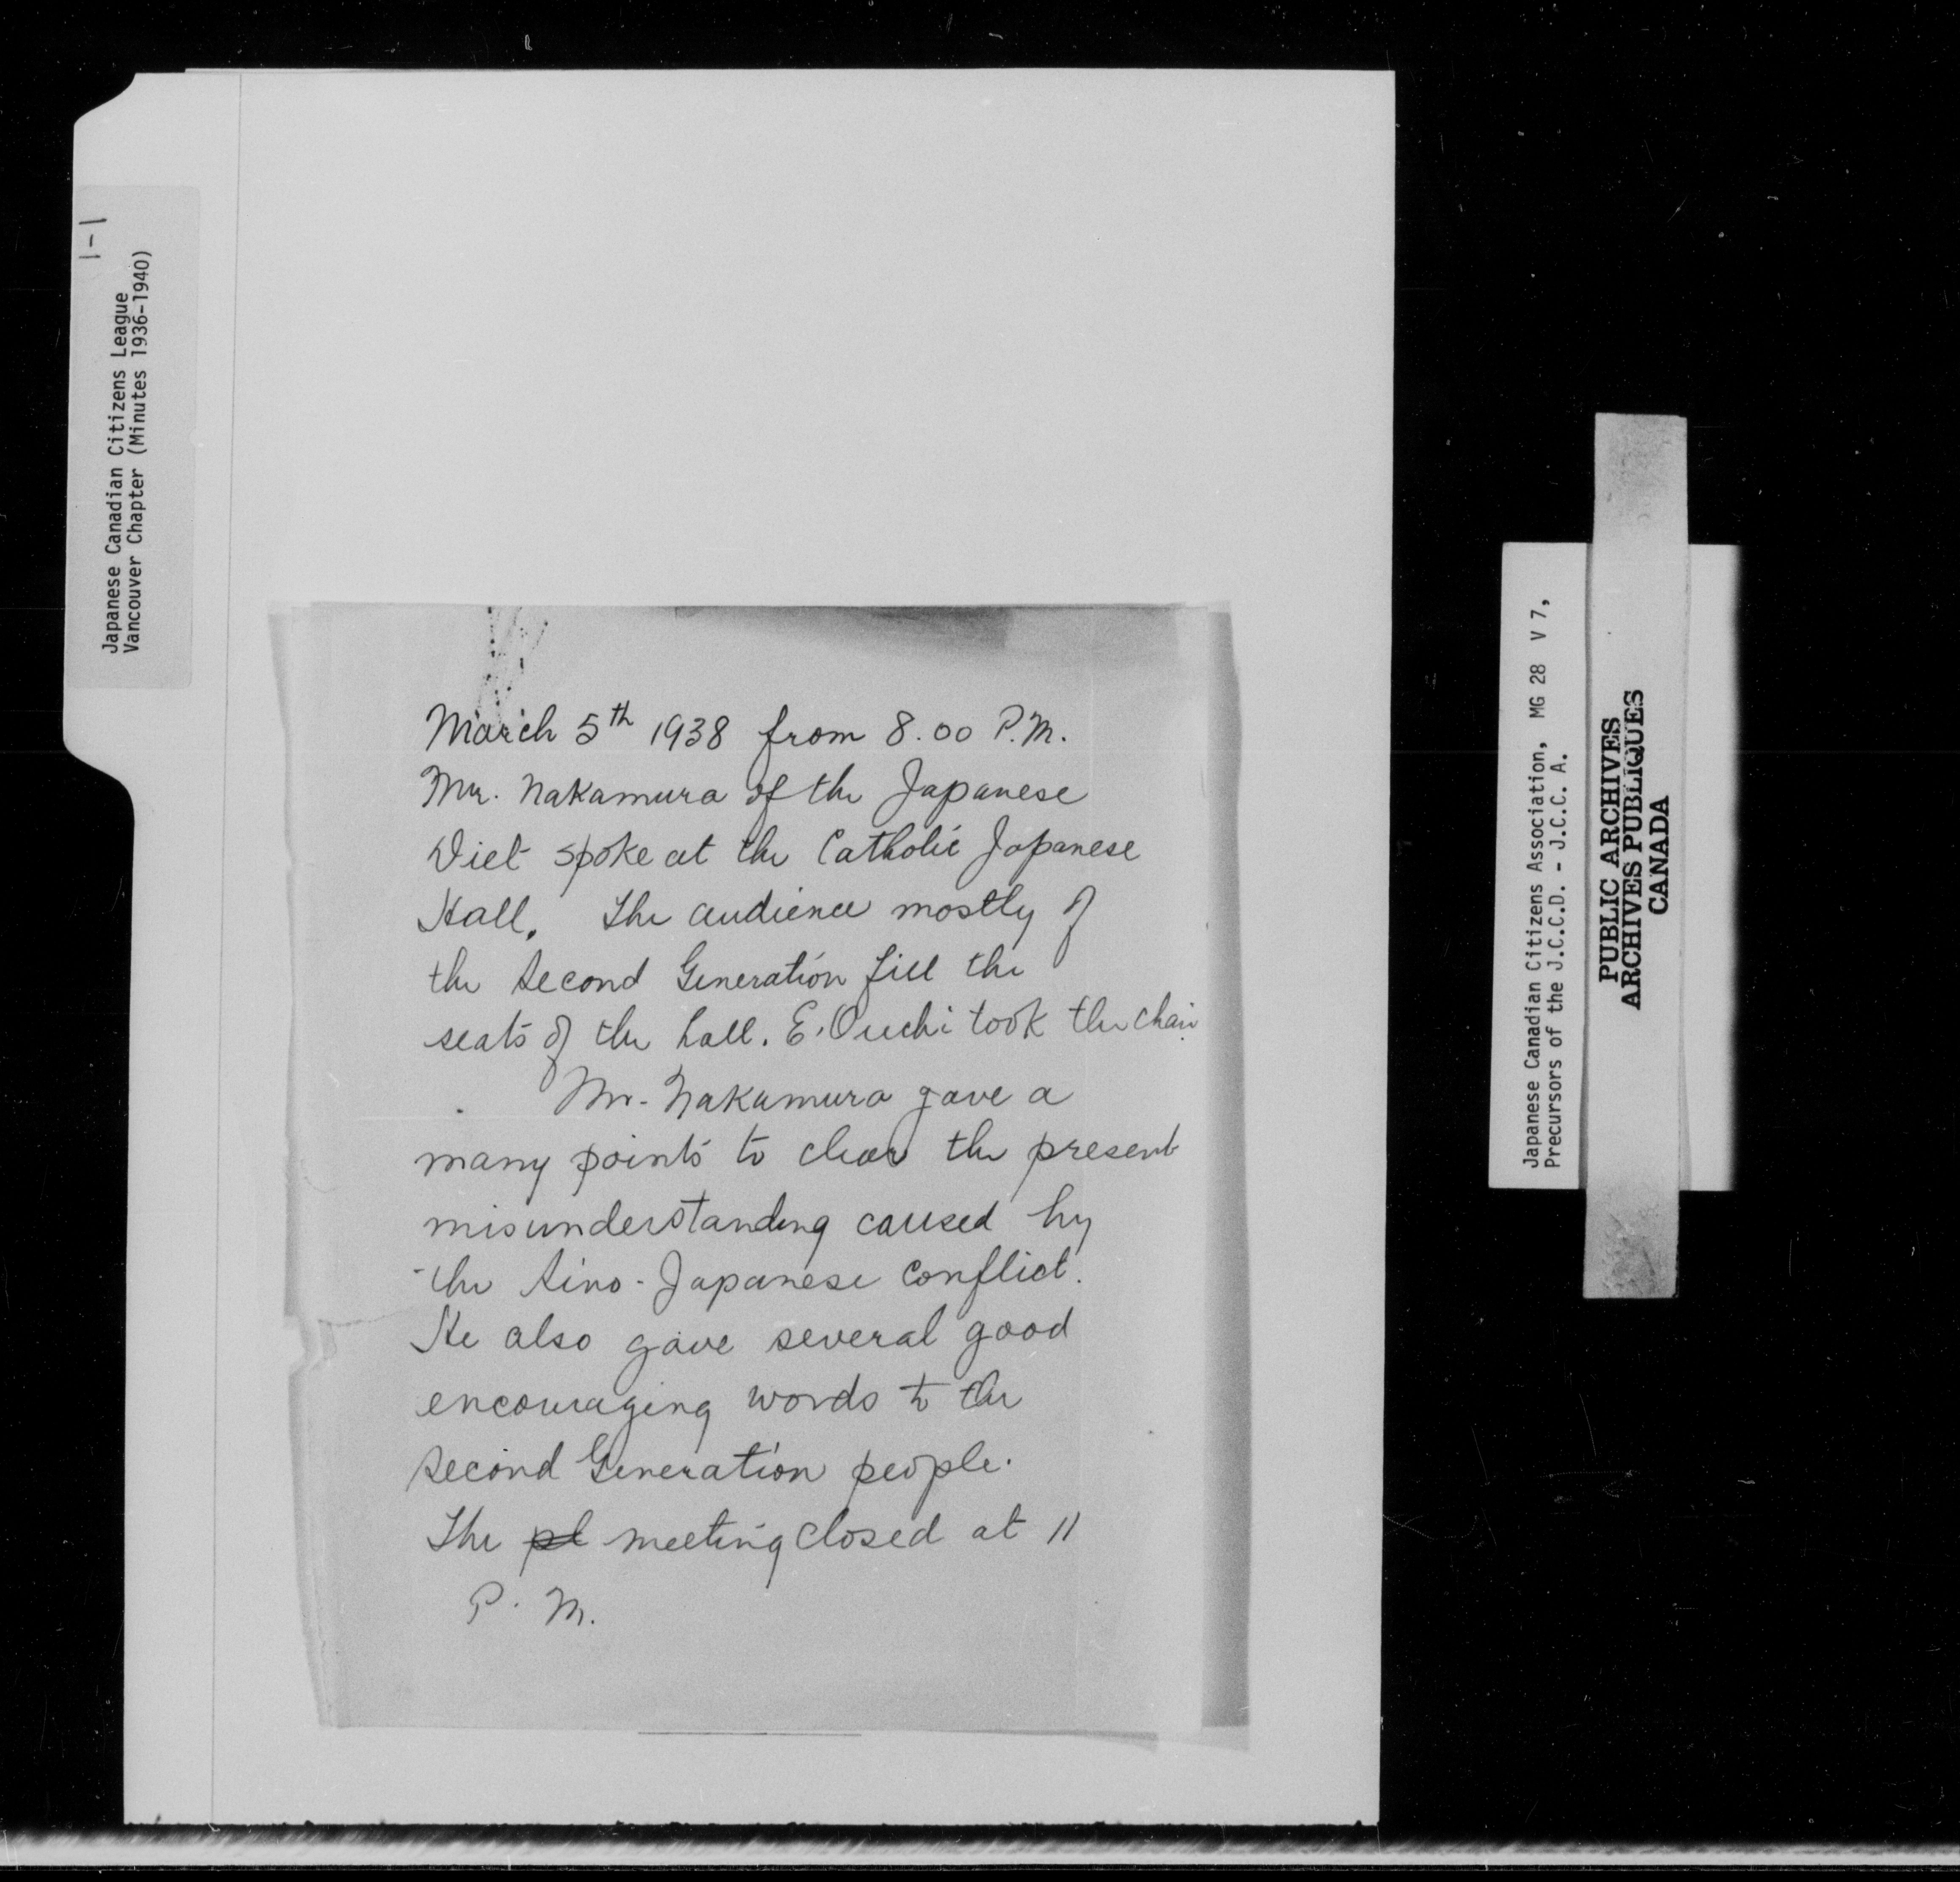 1-1
Japanese Canadian Citizens League
Vancouver Chapter (Minutes 1936-1940)
March 5th 1938 from 8.00 P.M.
Mr. Nakamura of the Japanese
Diet spoke at the Catholic Japanese
Hall. The audience mostly of
the Second Generation fill the
seats of the hall. E. Ouchi took the chair.
Mr. Nakamura gave a
many points to clear the present
misunderstanding caused by
the Sino-Japanese Conflict.
He also gave several good
encouraging words to the
Second Generation people.
The pl meeting closed at 11
P. M.
Japanese Canadian Citizens Association, MG 28 V 7,
Precursors of the J.C.C.D. - J.C.C. A.
PUBLIC ARCHIVES
ARCHIVES PUBLIQUES
CANADA